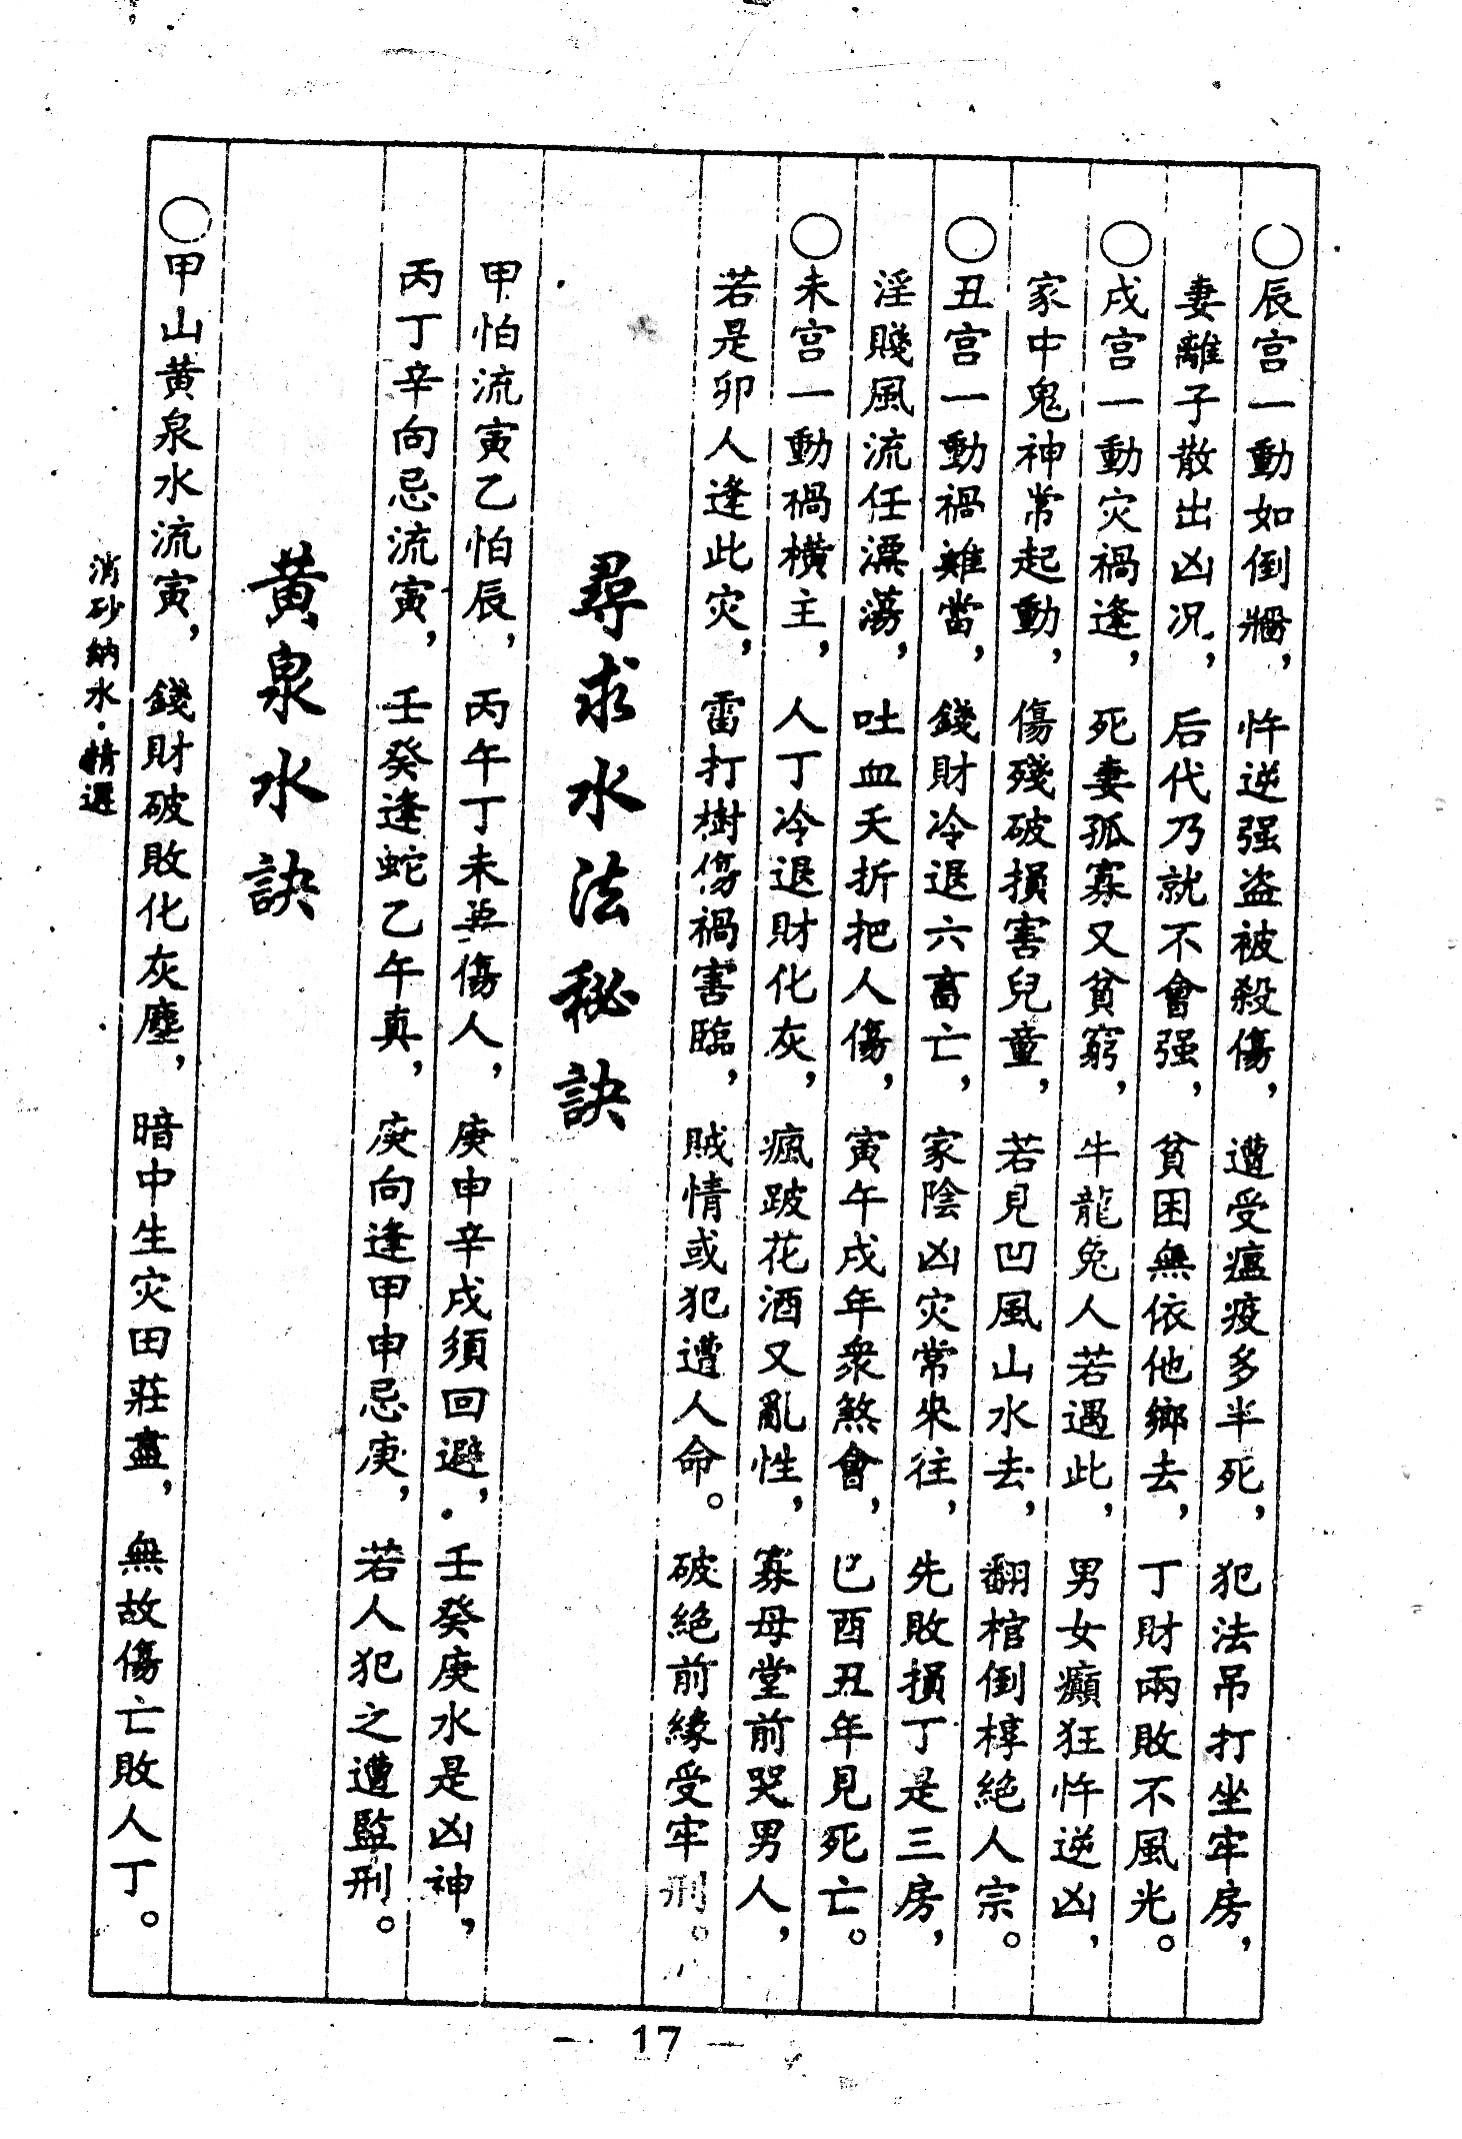 ○辰宫一動如倒壩，忤逆强盗被殺傷，遭受瘟疫多半死，犯法吊打坐牢房，
妻離子散出凶况，后代乃就不會强，貧困無依他鄉去，丁財兩敗不風光。
○戌宫一動灾禍逢，死妻孤寡又貧窮，牛龍兔人若遇此，男女癲狂忤逆凶，
家中鬼神常起動，傷殘破損害兒童，若見凹風山水去，翻棺倒椁絶人宗。
○丑宫一動禍難當，錢財冷退六畜亡，家陰凶灾常來往，先敗損丁是三房，
淫賤風流任漂蕩，吐血夭折把人傷，寅午戌年衆煞會，巳酉丑年見死亡。
○未宫一動禍橫主，人丁冷退財化灰，瘋跛花酒又亂性，寡母堂前哭男人，
若是卯人逢此灾，雷打樹傷禍害臨，賊情或犯遭人命。破絶前緣受牢刑。
尋求水法秘訣
甲怕流寅乙怕辰，丙午丁未并傷人，庚申辛戌須回避，壬癸庚水是凶神，
丙丁辛向忌流寅，壬癸逢蛇乙午真，庚向逢甲申忌庚，若人犯之遭監刑。
黄泉水訣
○甲山黄泉水流寅，錢財破敗化灰塵，暗中生灾田莊盡，無故傷亡敗人丁。
消砂納水·精選
— 17 —